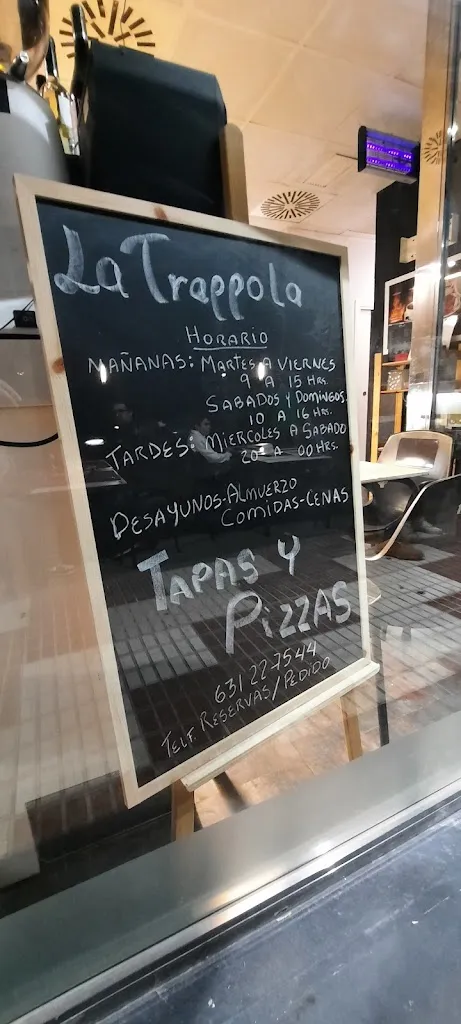 La Trappola
HORARIO
MAÑANAS: MARTES A VIERNES
9 A 15 HRS.
SABADOS Y DOMINGOS
10 A 16 HRS.
TARDES: MIERCOLES A SABADO
20 A 00 HRS.
DESAYUNOS-ALMUERZO
COMIDAS-CENAS
TAPAS Y
PIZZAS
631 22 7544
TELF. RESERVAS/PEDIDO